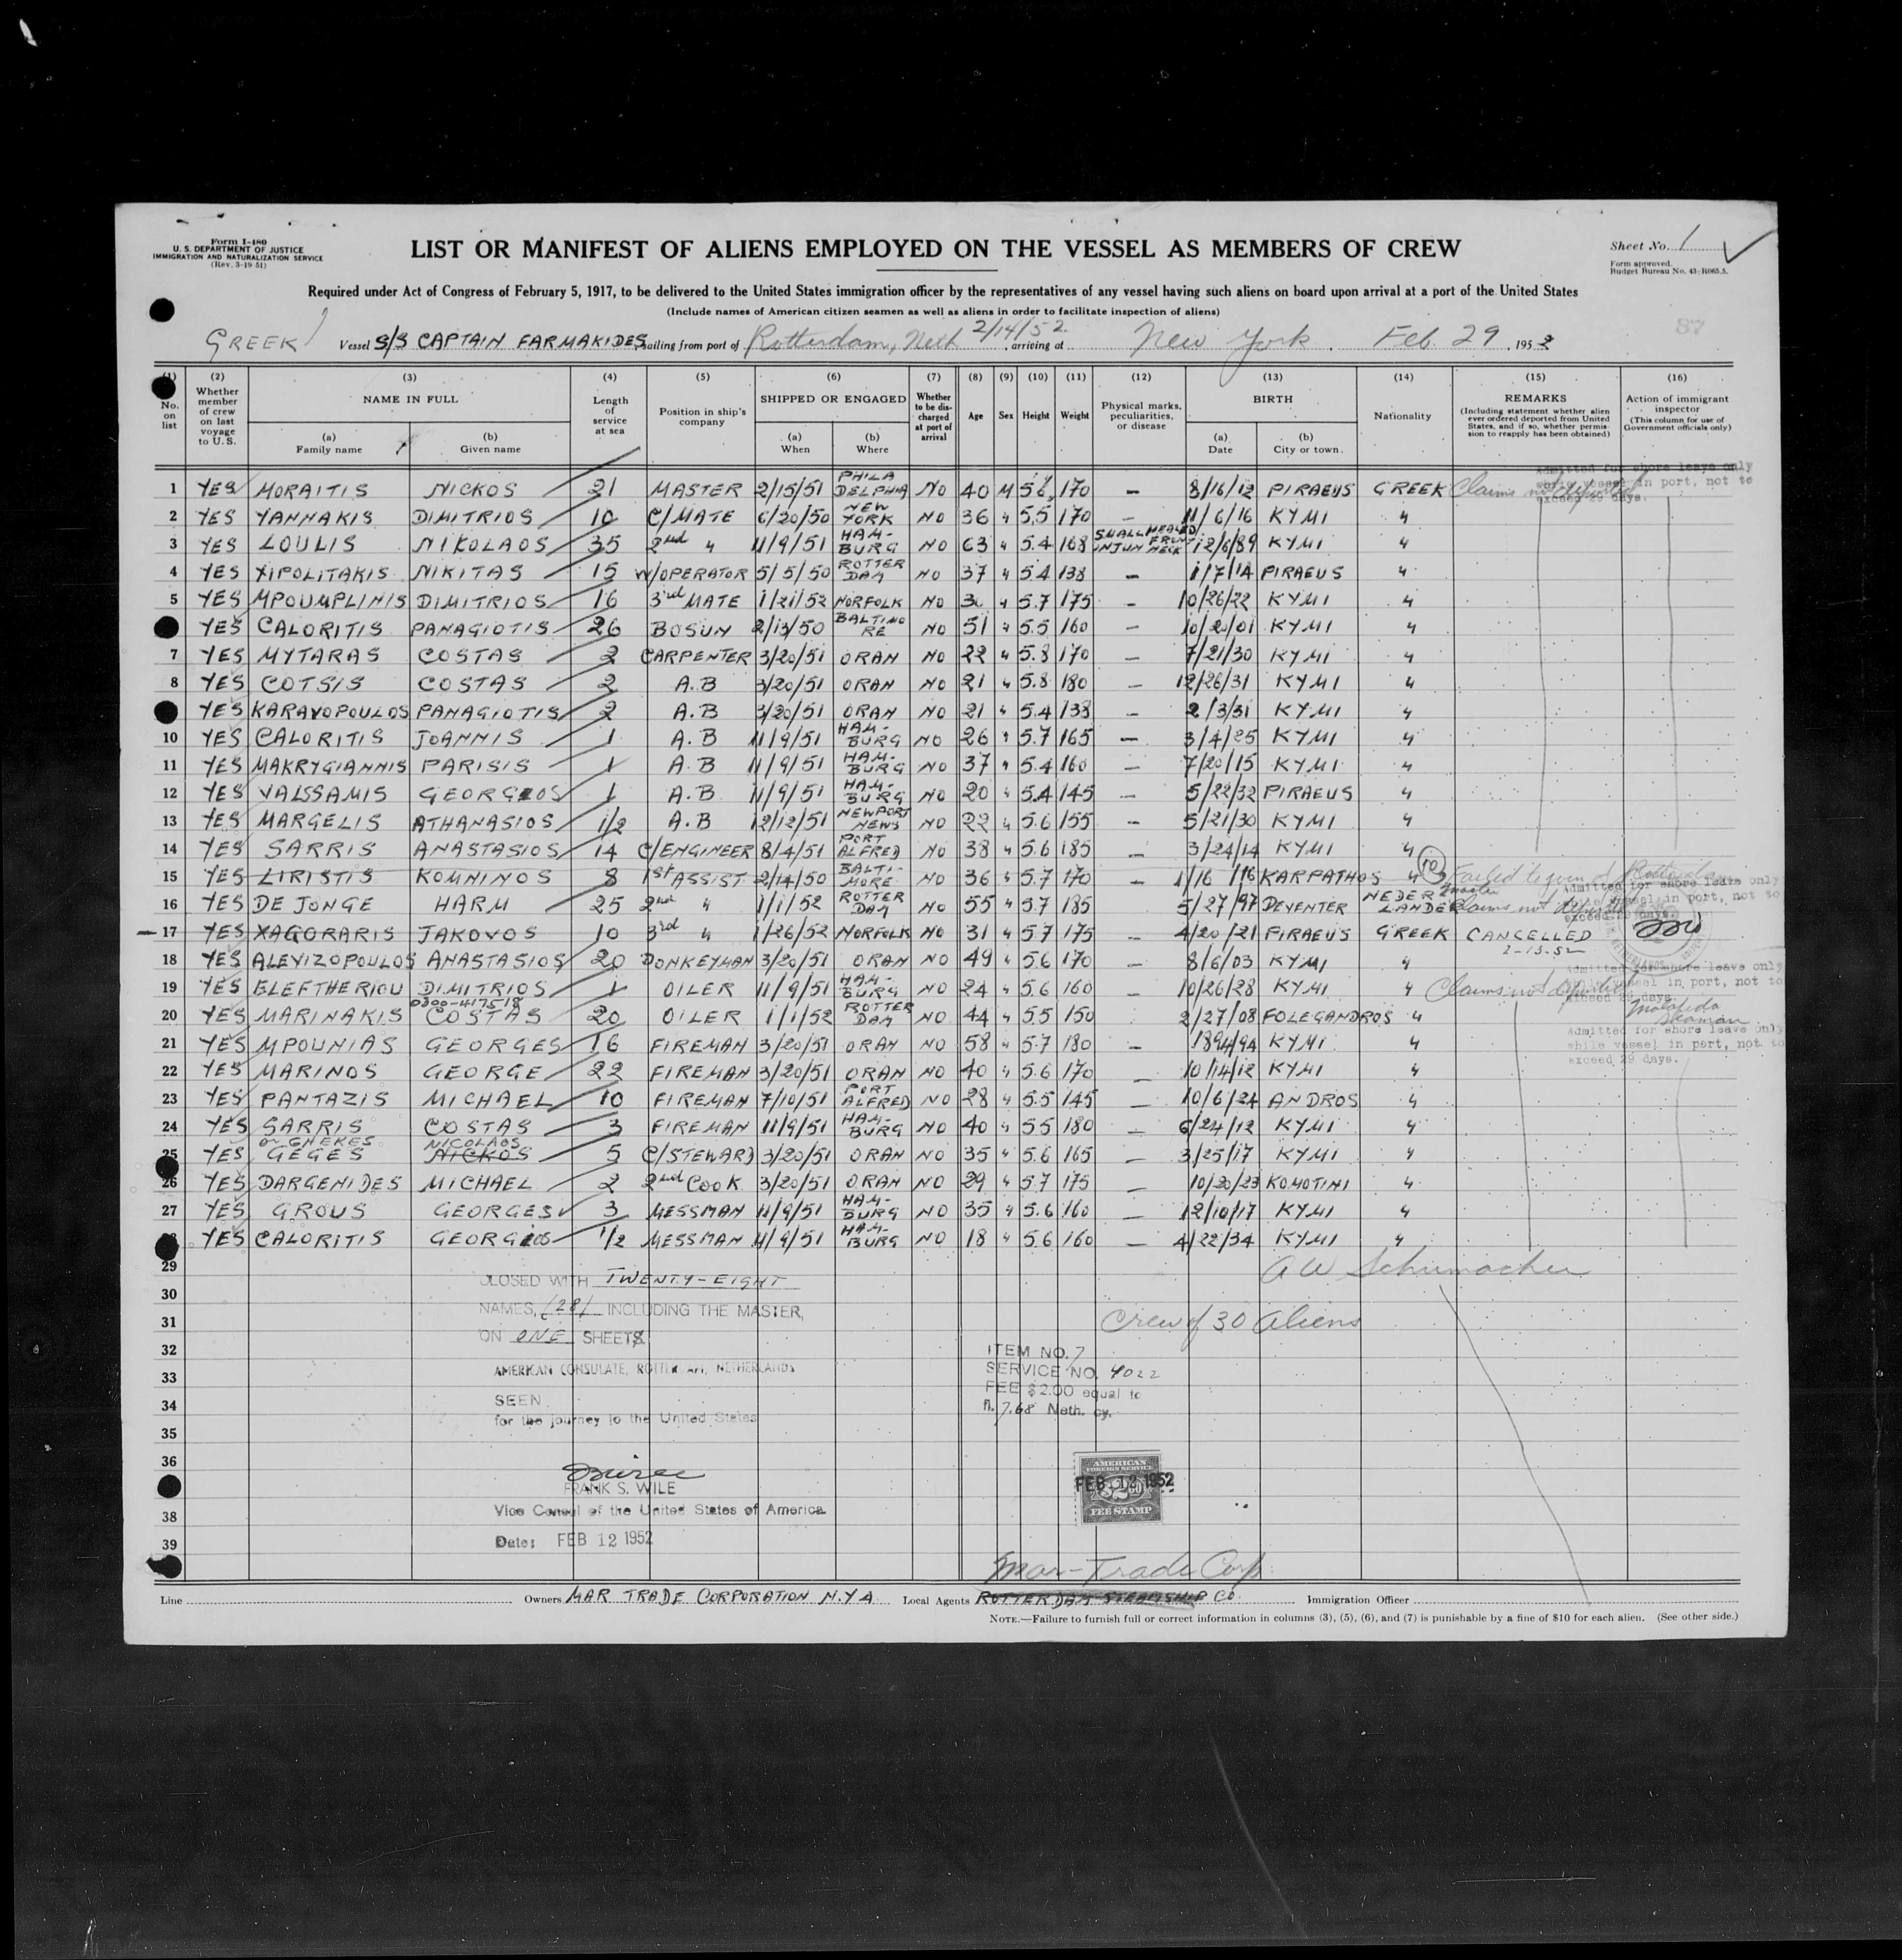 Form I-480
U. S. DEPARTMENT OF JUSTICE
IMMIGRATION AND NATURALIZATION SERVICE
(Rev. 3-19-51)
LIST OR MANIFEST OF ALIENS EMPLOYED ON THE VESSEL AS MEMBERS OF CREW
Sheet No. 1
Form approved.
Budget Bureau No. 43-R065.5.
Required under Act of Congress of February 5, 1917, to be delivered to the United States immigration officer by the representatives of any vessel having such aliens on board upon arrival at a port of the United States
(Include names of American citizen seamen as well as aliens in order to facilitate inspection of aliens)
87
GREEK Vessel S/S CAPTAIN FARMAKIDES, sailing from port of Rotterdam, Neth 2/14/52, arriving at New York. Feb. 29, 1952
(1) (2) (3) (4) (5) (6) (7) (8) (9) (10) (11) (12) (13) (14) (15) (16)
No. on list
Whether member of crew on last voyage to U. S.
NAME IN FULL
(a) Family name
(b) Given name
Length of service at sea
Position in ship's company
SHIPPED OR ENGAGED
(a) When
(b) Where
Whether to be discharged at port of arrival
Age
Sex
Height
Weight
Physical marks, peculiarities, or disease
BIRTH
(a) Date
(b) City or town
Nationality
REMARKS
(Including statement whether alien ever ordered deported from United States, and if so, whether permission to reapply has been obtained)
Action of immigrant inspector
(This column for use of Government officials only)
1 YES MORAITIS NICKOS 21 MASTER 2/15/51 PHILADELPHIA NO 40 M 5.6 170 — 8/16/12 PIRAEUS GREEK Claims not deported
Admitted for shore leave only
while vessel in port, not to
exceed 29 days.
2 YES YANNAKIS DIMITRIOS 10 C/MATE 6/20/50 NEW YORK NO 36 " 5.5 170 — 11/6/16 KYMI "
3 YES LOULIS NIKOLAOS 35 2nd " 11/9/51 HAMBURG NO 63 " 5.4 168 SMALL HEALED FRONT NECK 12/6/89 KYMI "
4 YES XIPOLITAKIS NIKITAS 15 W/OPERATOR 5/5/50 ROTTERDAM NO 37 " 5.4 138 — 1/7/14 PIRAEUS "
5 YES MPOUMPLINIS DIMITRIOS 16 3rd MATE 1/21/52 NORFOLK NO " 5.7 175 — 10/26/22 KYMI "
YES CALORITIS PANAGIOTIS 26 BOSUN 2/13/50 BALTIMORE NO 51 " 5.5 160 — 10/20/01 KYMI "
7 YES MYTARAS COSTAS 2 CARPENTER 3/20/51 ORAN NO 22 " 5.8 170 — 7/21/30 KYMI "
8 YES COTSIS COSTAS 2 A.B 3/20/51 ORAN NO 21 " 5.8 180 — 12/26/31 KYMI "
YES KARAVOPOULOS PANAGIOTIS 2 A.B 3/20/51 ORAN NO 21 " 5.4 138 — 2/3/31 KYMI "
10 YES CALORITIS JOANNIS 1 A.B 11/9/51 HAMBURG NO 26 " 5.7 165 — 3/4/25 KYMI "
11 YES MAKRYGIANNIS PARISIS 1 A.B 11/9/51 HAMBURG NO 37 " 5.4 160 — 7/20/15 KYMI "
12 YES VALSSAMIS GEORGIOS 1 A.B 11/9/51 HAMBURG NO 20 " 5.4 145 — 5/22/32 PIRAEUS "
13 YES MARGELIS ATHANASIOS 1/2 A.B 12/12/51 NEWPORT NEWS NO 22 " 5.6 155 — 5/21/30 KYMI "
14 YES SARRIS ANASTASIOS 14 C/ENGINEER 8/4/51 PORT ALFRED NO 38 " 5.6 185 — 3/24/14 KYMI "
15 YES LIRISTIS KOMNINOS 8 1st ASSIST 2/14/50 BALTIMORE NO 36 " 5.7 170 — 1/16/16 KARPATHOS " Failed to join at Rotterdam
16 YES DE JONGE HARM 25 2nd " 1/1/52 ROTTERDAM NO 55 " 5.7 185 — 5/27/97 DEVENTER NEDERLANDER Claims not deported
Admitted for shore leave only
while vessel in port, not to
exceed 29 days.
17 YES XAGORARIS JAKOVOS 10 3rd " 1/26/52 NORFOLK NO 31 " 5.7 175 — 4/20/21 PIRAEUS GREEK CANCELLED
2-13-52
18 YES ALEVIZOPOULOS ANASTASIOS 20 DONKEYMAN 3/20/51 ORAN NO 49 " 5.6 170 — 8/6/03 KYMI "
19 YES ELEFTHERIOU DIMITRIOS 1 OILER 11/9/51 HAMBURG NO 24 " 5.6 160 — 10/26/28 KYMI " Claims not deported
Admitted for shore leave only
while vessel in port, not to
exceed 29 days.
0300-417518
20 YES MARINAKIS COSTAS 20 OILER 1/1/52 ROTTERDAM NO 44 " 5.5 150 2/27/08 FOLEGANDROS " Malafida Seaman
21 YES MPOUNIAS GEORGES 16 FIREMAN 3/20/51 ORAN NO 58 " 5.7 180 — KYMI "
Admitted for shore leave only
while vessel in port, not to
exceed 29 days.
22 YES MARINOS GEORGE 22 FIREMAN 3/20/51 ORAN NO 40 " 5.6 170 — 10/14/12 KYMI "
23 YES PANTAZIS MICHAEL 10 FIREMAN 7/10/51 PORT ALFRED NO 28 " 5.5 145 — 10/6/24 ANDROS "
24 YES SARRIS COSTAS 3 FIREMAN 11/9/51 HAMBURG NO 40 " 5.5 180 — 6/24/12 KYMI "
or GHEKES NICOLAOS
25 YES GEGES NICKOS 5 C/STEWARD 3/20/51 ORAN NO 35 " 5.6 165 — 3/25/17 KYMI "
26 YES DARGENIDES MICHAEL 2 2nd COOK 3/20/51 ORAN NO 29 " 5.7 175 — 10/20/23 KOMOTINI "
27 YES GROUS GEORGES 3 MESSMAN 11/9/51 HAMBURG NO 35 " 5.6 160 — 12/10/17 KYMI "
YES CALORITIS GEORGIOS 1/2 MESSMAN 11/9/51 HAMBURG NO 18 " 5.6 160 — 4/22/34 KYMI "
29 A W Schumacher
CLOSED WITH TWENTY-EIGHT
30
NAMES, (28) INCLUDING THE MASTER,
31 Crew of 30 Aliens
ON ONE SHEETS
32 ITEM NO. 7
AMERICAN CONSULATE, ROTTERDAM, NETHERLANDS
33 SERVICE NO. 4022
FEE $2.00 equal to
34 SEEN
fl. 7.68 Neth. cy.
for the journey to the United States
35
36
FRANK S. WILE
AMERICAN FOREIGN SERVICE
FEB. 12 1952
FEE STAMP
Vice Consul of the United States of America
38
39
Date: FEB 12 1952
Mar-Trade Corp
Line Owners MAR TRADE CORPORATION N.Y A Local Agents ROTTERDAM STEAMSHIP CO. Immigration Officer
NOTE.—Failure to furnish full or correct information in columns (3), (5), (6), and (7) is punishable by a fine of $10 for each alien. (See other side.)